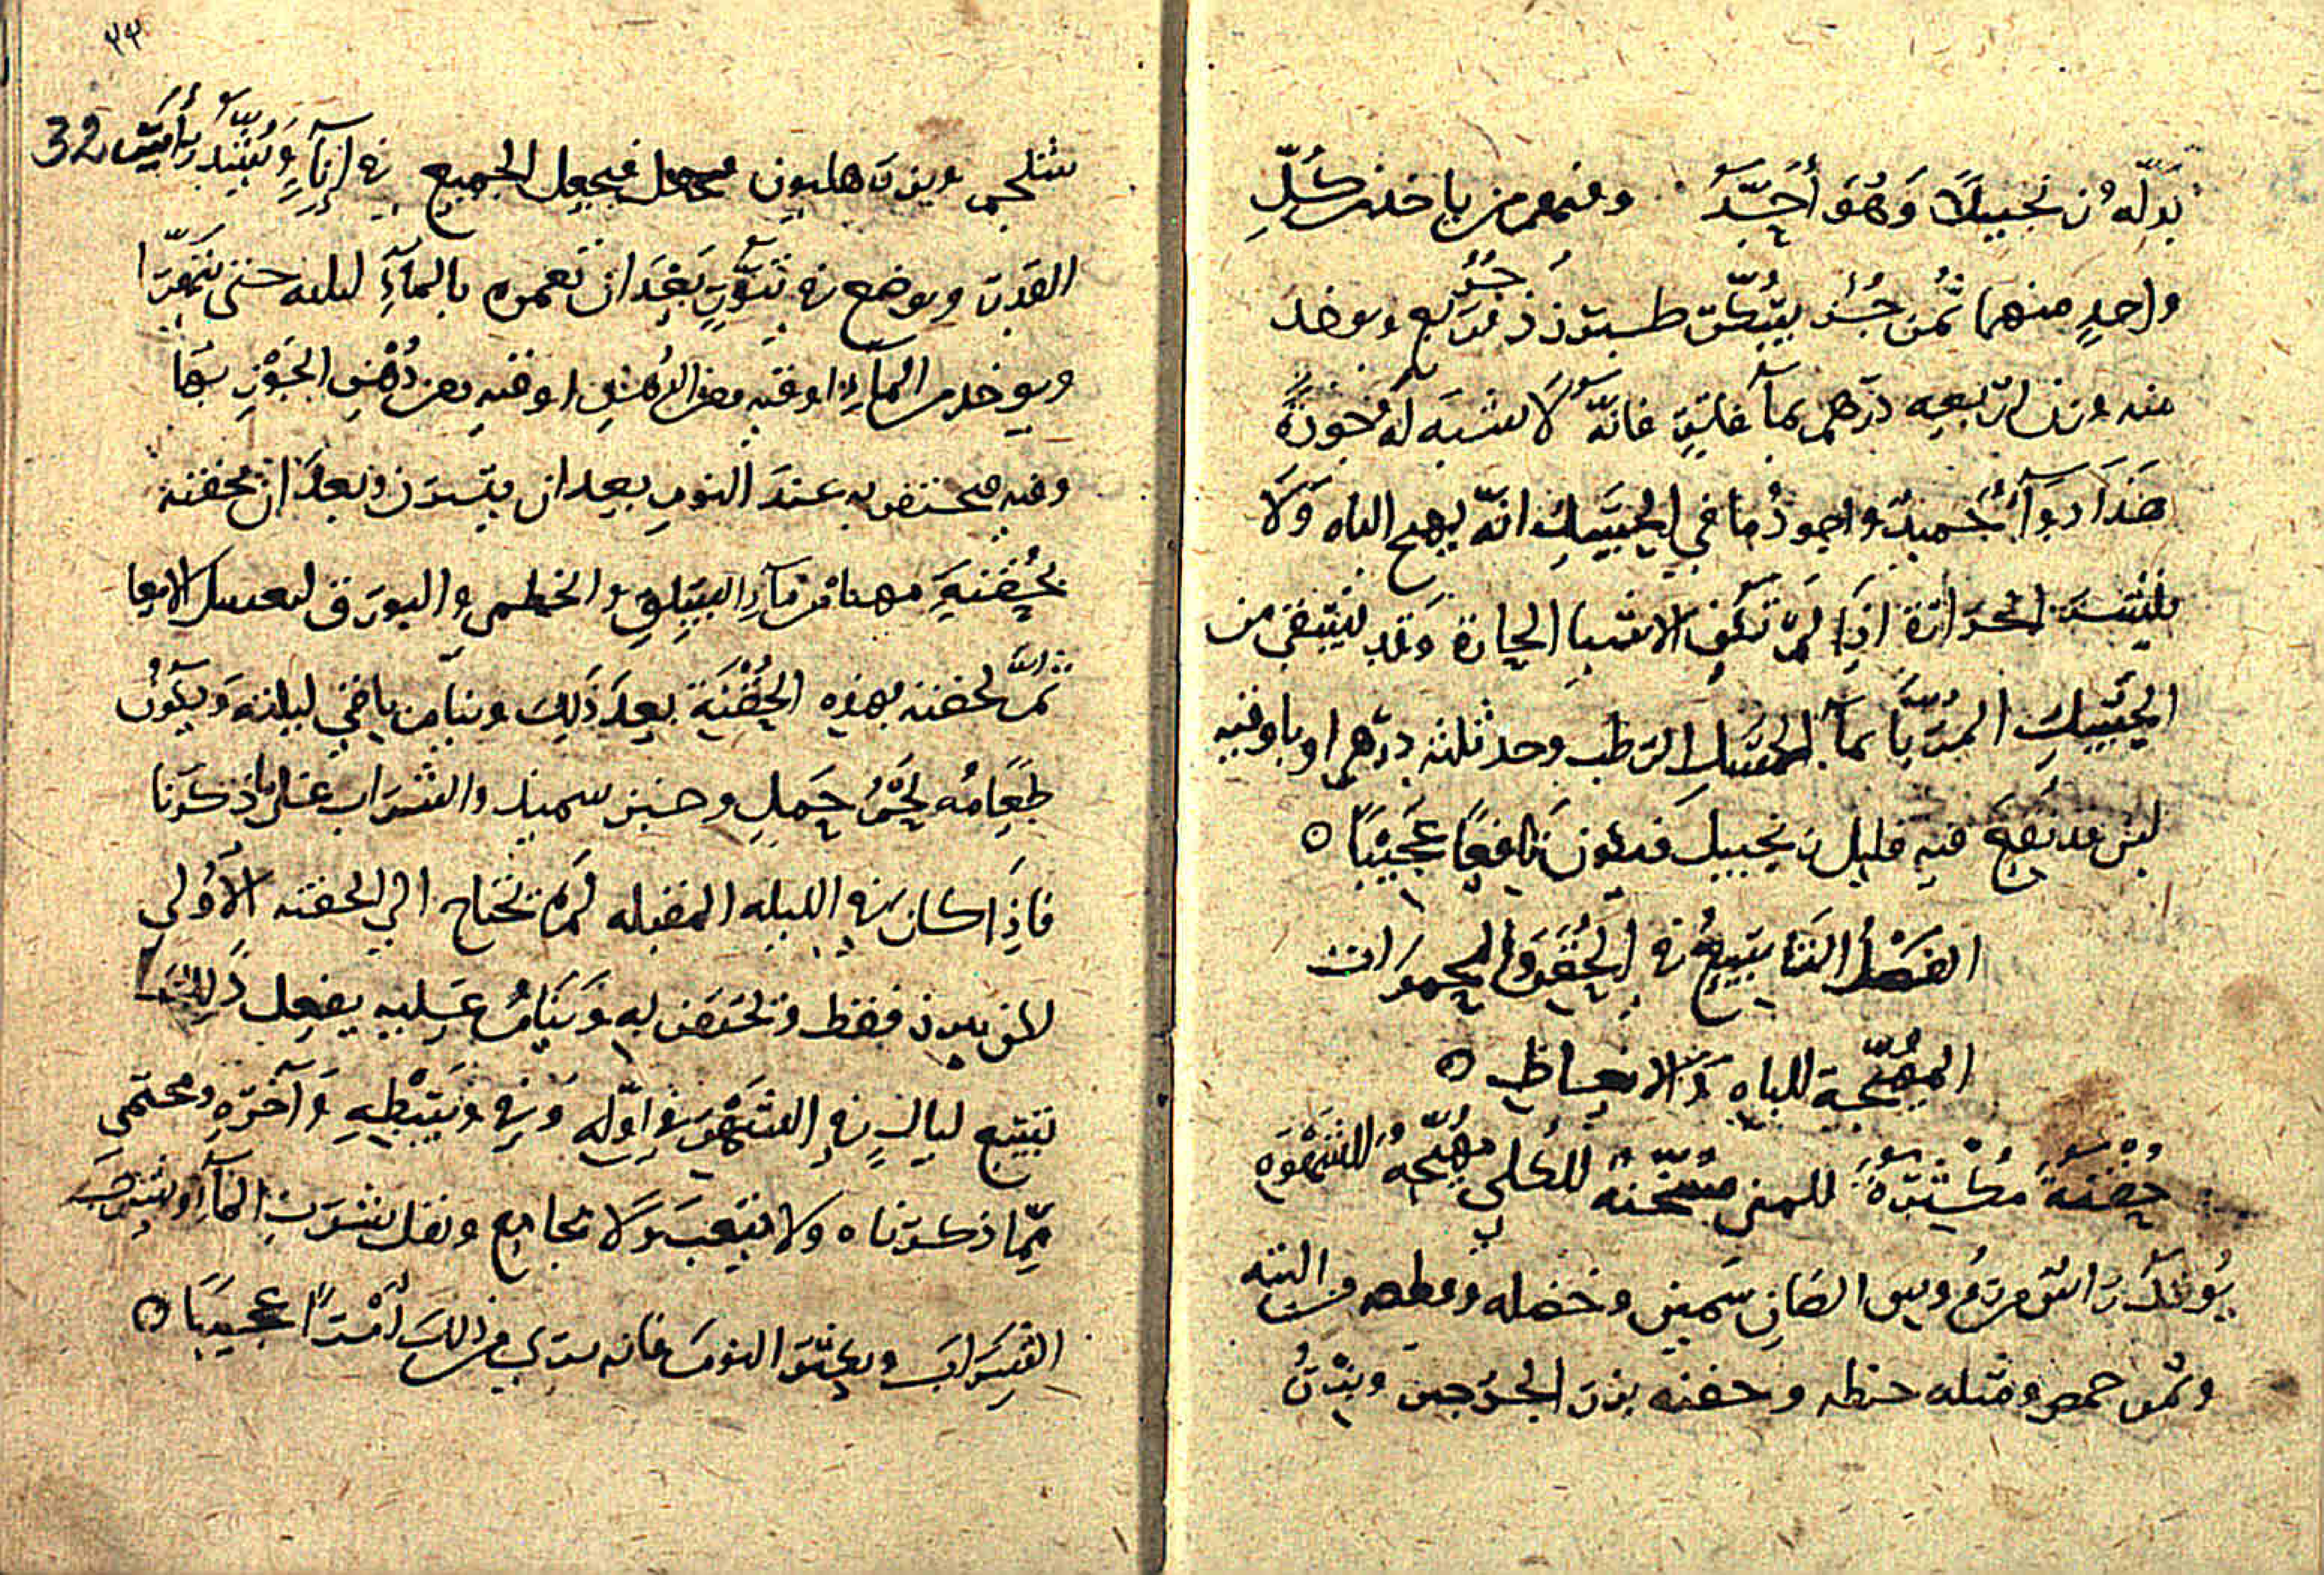 بدله زنجبيلا وهو أجيد ومنهم من ياخذ من كل
واحد منهما ثمن جزء بيت سكر طبرزد جزء ربع ويوخذ
منه وزن اربعه درهم بمآ فاتر فانه لا يشبه له جودة
هذا دوآء حميد واجود ما في الحسك انه يهيج الباه ولا
يلتمس الحرارة اذا لم تكن الاشيا الحارة وقد ينتفي من
الحسك المربا بمآ الحسك الرطب وحد ثلثه درهم او باوقيه
لبن قد نقع فيه قليل زنجبيل فيكون نافعا عجيبا ه
الفصل التاسع في الحقن والحمولات
المهيجة للباه والانعاظ ه
حقنة مكثرة للمني مسخنه للكلي مهيجه للشهوه
يوخذ راس من روس الضان سمين وخصله وقطعه من اليته
وثمن حمص ومثله حنطه وحفنه بزر الجرجير وبزر
٣٢
32
شلجم وبزر هليون فيجعل الجميع في إنآء ويشد راس
القدر ويوضع في تنور بعد ان تغمره بالمآء ليله حتى يتهرا
ويوخذ من المآء اوقيه ومن الدهن اوقيه ومن دهن الجوز
وقيه فيحتقن به عند النوم بعد ان يتبرز وبعد ان تحقنه
بحقنة مهياة من مآء السلق والخطمي والبورق لتغسل الامعا
ثم تحقنه بهذه الحقنة بعد ذلك وينام باقي ليلته ويكون
طعامه لحم حمل وخبز سميد والشراب على ما ذكرنا
فاذا كان في الليله المقبله لم تحتاج الي الحقنه الأولي
لان يبرز فقط وتحتقن به وينام عليه يفعل ذلك
سبع ليال في الشهر في اوله وفي وسطه وآخره ويحتمي
مما ذكرناه ولا يتعب ولا يجامع ويقل شرب المآء ويشرب
الشراب ويكثر النوم فانه يري من ذلك أمرا عجيبا ه